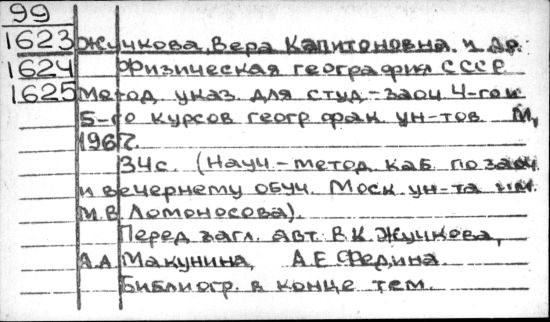 99
1623 Жучкова, Вера Капитоновна и др.
1624 Физическая география СССР
1625 Метод. указ. для студ-заоч 4-го и
5-го курсов геогр. фак. ун-тов М,
1967.
34с. (Науч.-метод. каб. по заоч.
и вечернему обуч. Моск. ун-та им.
М.В. Ломоносова).
Перед загл. авт. В.К. Жучкова,
А.А. Макунина, А.Е. Федина
Библиогр. в конце тем.